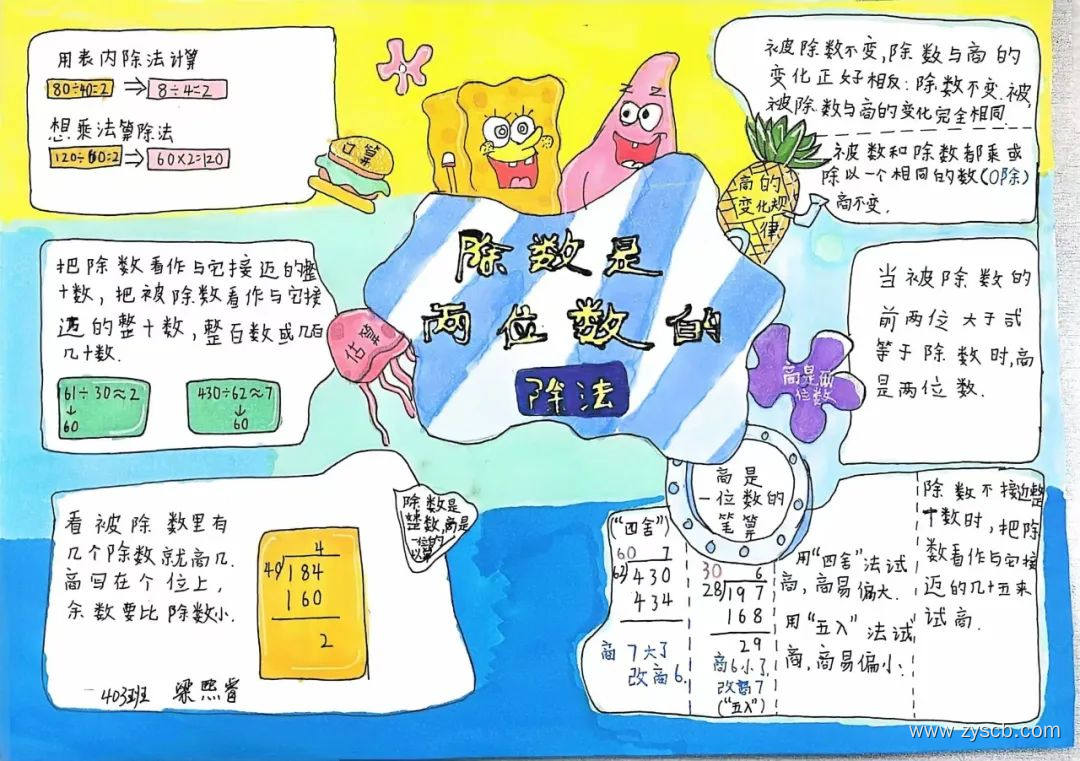 用表内除法计算
80÷40=2 ⇒ 8÷4=2
想乘法算除法
120÷60=2 ⇒ 60×2=120
口算
被除数不变,除数与商的
变化正好相反:除数不变.被,
被除数与商的变化完全相同.
被数和除数都乘或
除以一个相同的数(0除)
商不变.
商的
变化规
律
除数是
两位数的
除法
把除数看作与它接近的整
十数,把被除数看作与它接
近的整十数,整百数或几百
几十数.
61÷30≈2
↓
60
430÷62≈7
↓
60
估算
当被除数的
前两位大于或
等于除数时,商
是两位数.
商是两
位数
看被除数里有
几个除数就商几.
商写在个位上,
余数要比除数小.
4
184
160
2
除数是
整数,商是
一位的
403班 梁熙睿
商是
一位数的
笔算
("四舍")
60 7
62 430
434
商7大了
改商6.
30 6
28 197
168
29
商6小了
改商7
("五入")
用"四舍"法试
商,商易偏大.
用"五入"法试
商,商易偏小.
除数不接近整
十数时,把除
数看作与它接
近的几十五来
试商.
www.zyscb.com